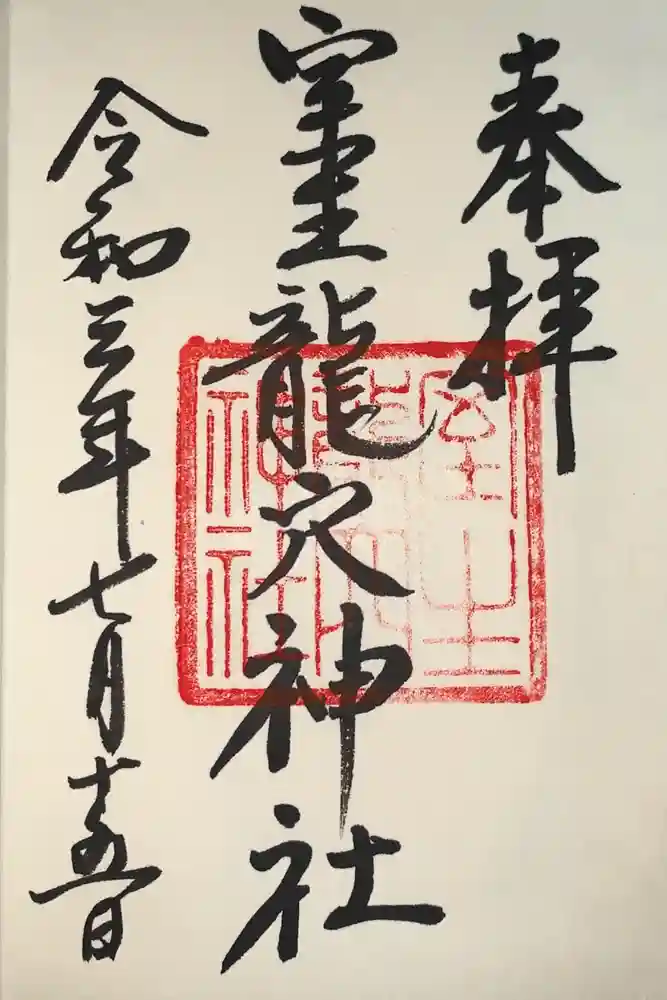 奉拝
室生龍穴神社
令和三年七月十五日
室生
龍穴
神社